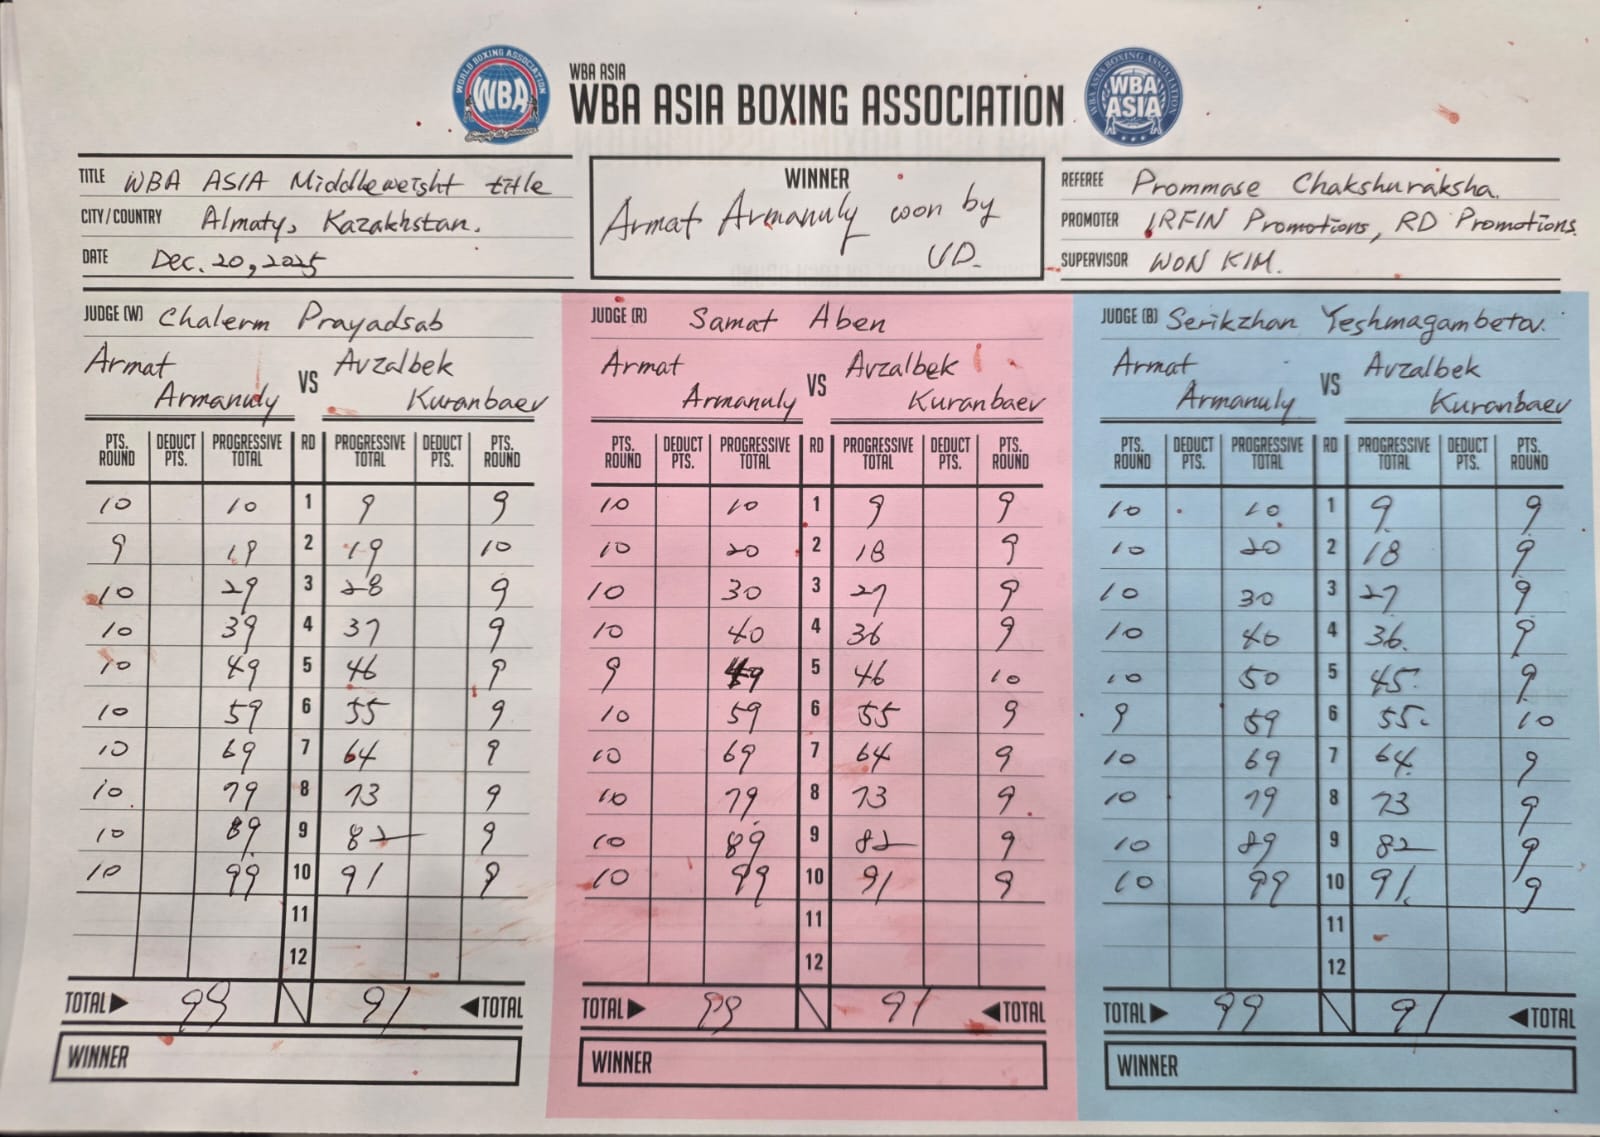 WORLD BOXING ASSOCIATION
WBA
Simply the pioneers
WBA ASIA
WBA ASIA BOXING ASSOCIATION
WBA ASIA BOXING ASSOCIATION
WBA
ASIA
TITLE WBA ASIA Middleweight title
CITY/COUNTRY Almaty, Kazakhstan.
DATE Dec. 20, 2025
WINNER
Armat Armanuly won by
UD.
REFEREE Prommase Chakshuraksha.
PROMOTER IRFIN Promotions, RD Promotions.
SUPERVISOR WON KIM.
JUDGE (W) Chalerm Prayadsab
Armat Armanuly VS Avzalbek Kuranbaev
PTS. ROUND DEDUCT PTS. PROGRESSIVE TOTAL RD PROGRESSIVE TOTAL DEDUCT PTS. PTS. ROUND
10 10 1 9 9
9 19 2 19 10
10 29 3 28 9
10 39 4 37 9
10 49 5 46 9
10 59 6 55 9
10 69 7 64 9
10 79 8 73 9
10 89 9 82 9
10 99 10 91 9
11
12
TOTAL 99 91 TOTAL
WINNER
JUDGE (R) Samat Aben
Armat Armanuly VS Avzalbek Kuranbaev
PTS. ROUND DEDUCT PTS. PROGRESSIVE TOTAL RD PROGRESSIVE TOTAL DEDUCT PTS. PTS. ROUND
10 10 1 9 9
10 20 2 18 9
10 30 3 27 9
10 40 4 36 9
9 49 5 46 10
10 59 6 55 9
10 69 7 64 9
10 79 8 73 9
10 89 9 82 9
10 99 10 91 9
11
12
TOTAL 99 91 TOTAL
WINNER
JUDGE (B) Serikzhan Yeshmagambetov.
Armat Armanuly VS Avzalbek Kuranbaev
PTS. ROUND DEDUCT PTS. PROGRESSIVE TOTAL RD PROGRESSIVE TOTAL DEDUCT PTS. PTS. ROUND
10 10 1 9 9
10 20 2 18 9
10 30 3 27 9
10 40 4 36. 9
10 50 5 45. 9
9 59 6 55. 10
10 69 7 64. 9
10 79 8 73 9
10 89 9 82 9
10 99 10 91. 9
11
12
TOTAL 99 91 TOTAL
WINNER